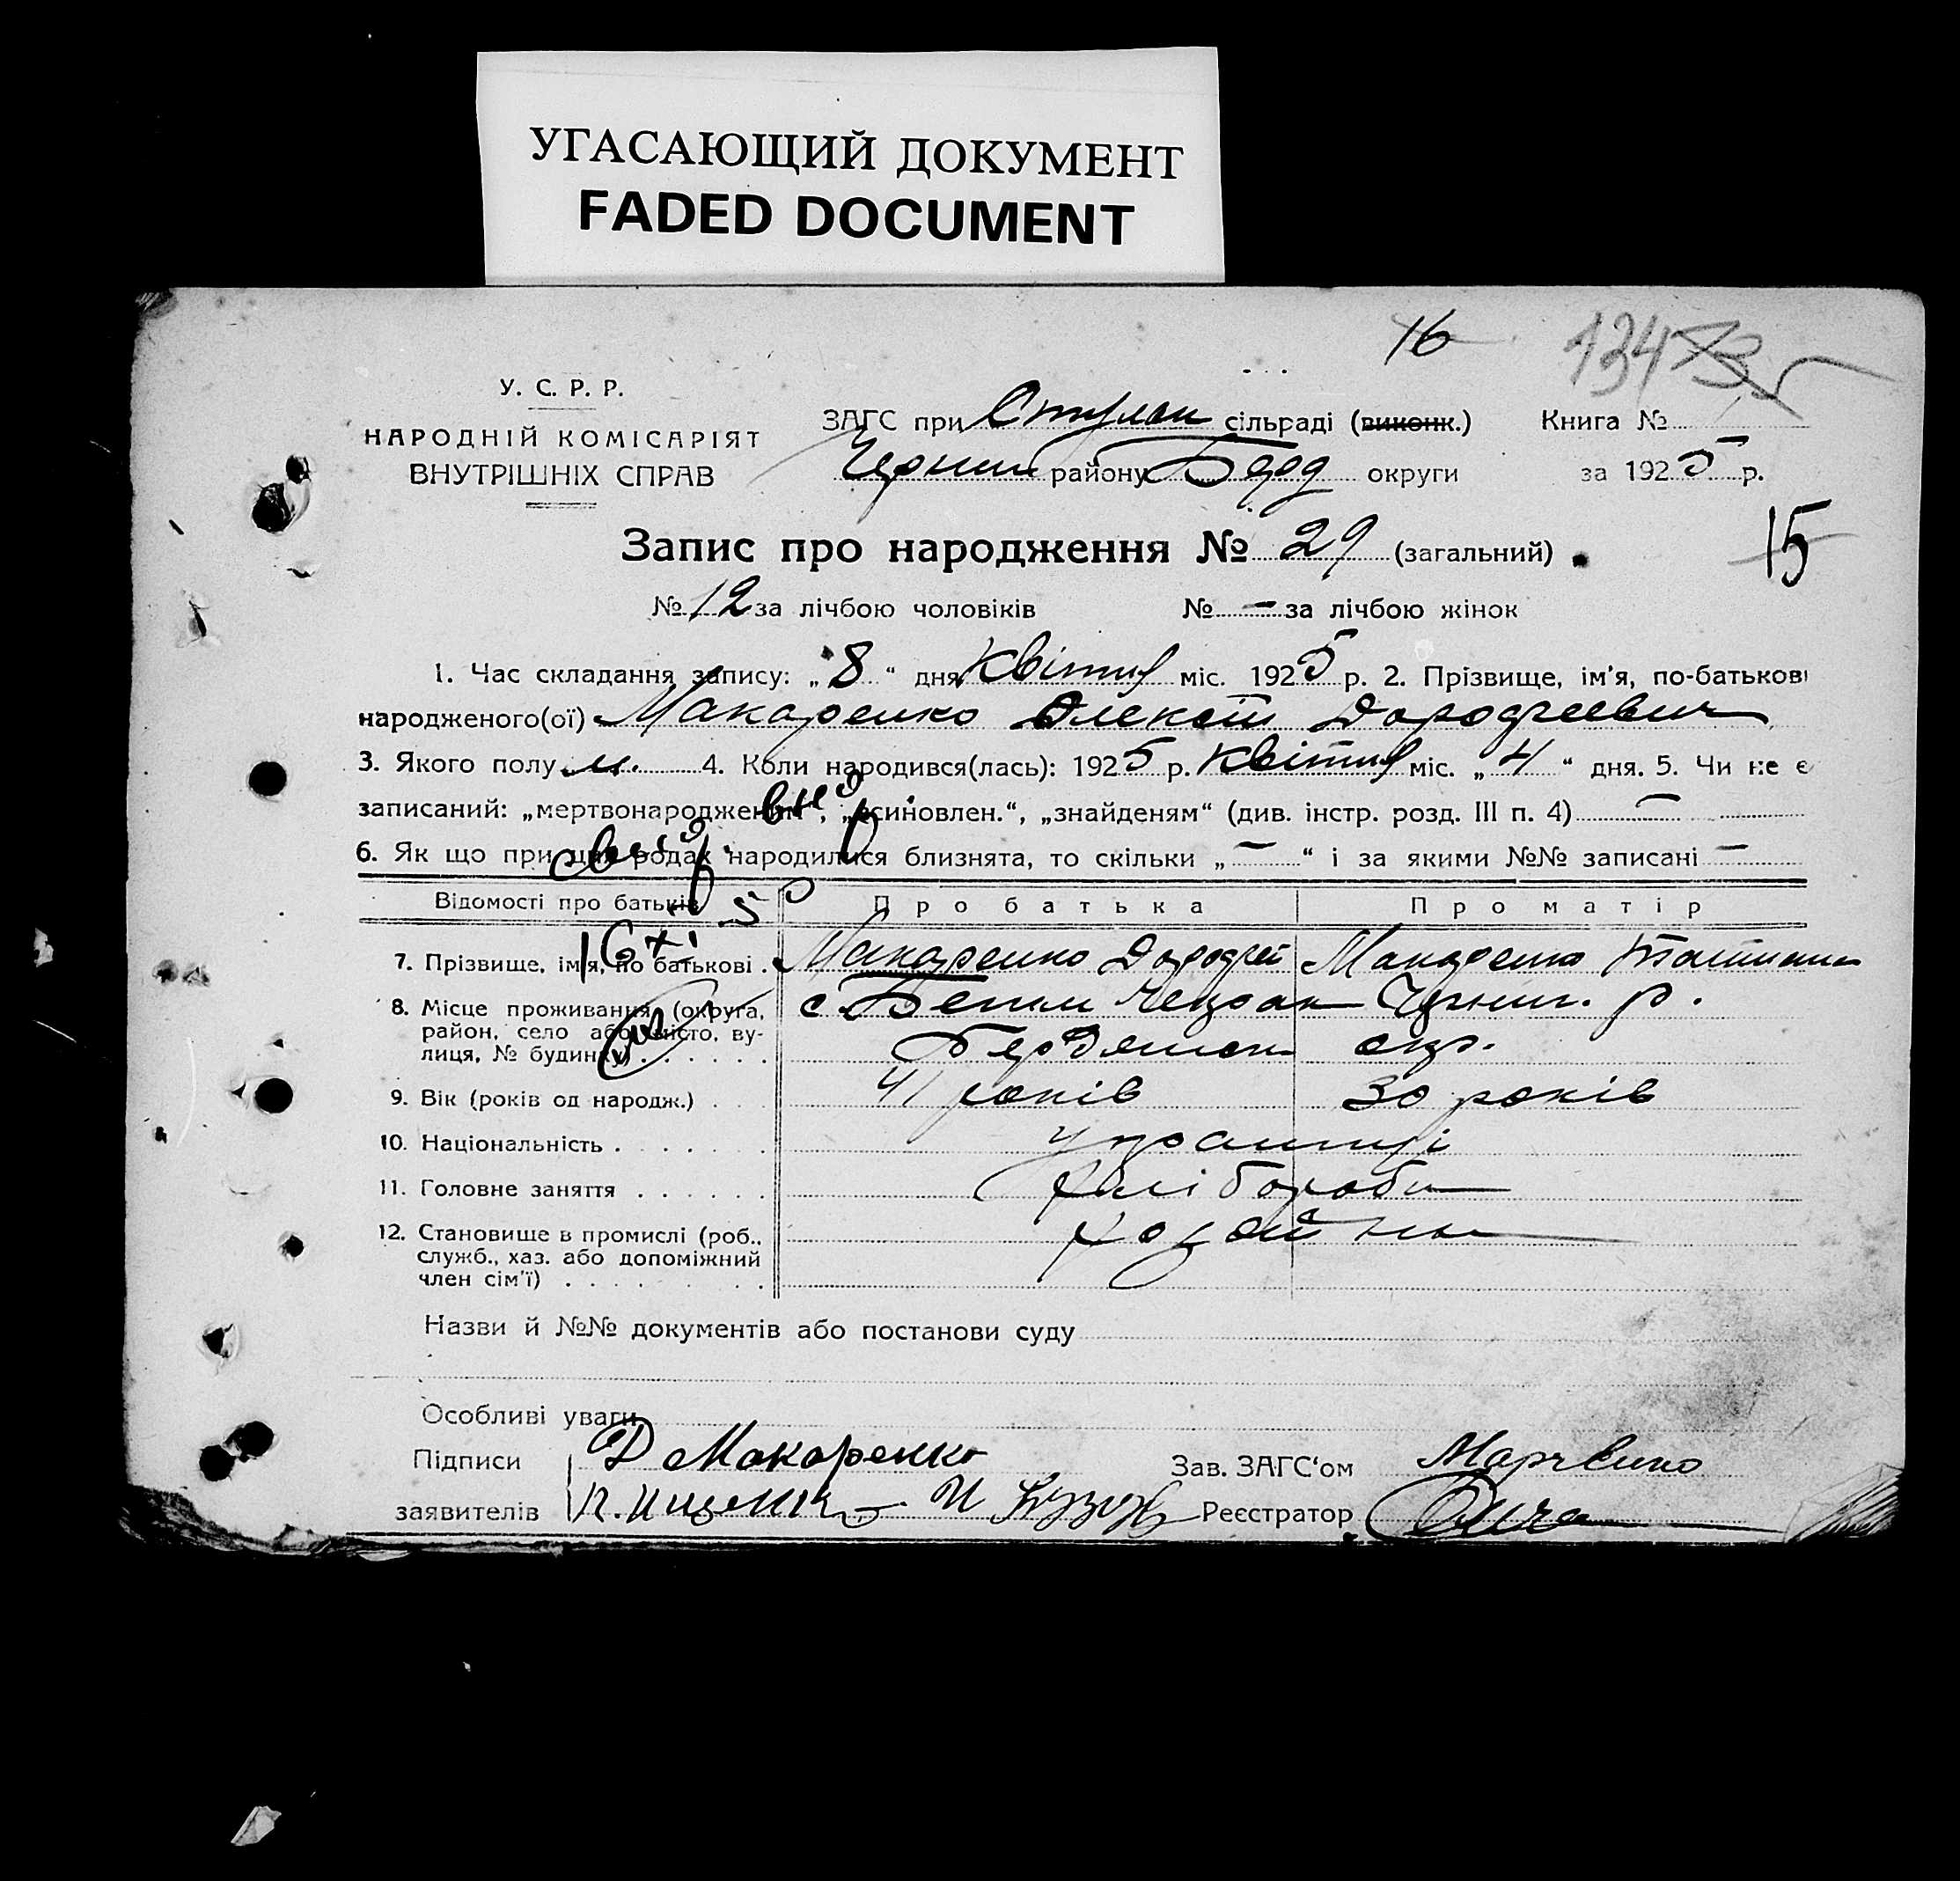 УГАСАЮЩИЙ ДОКУМЕНТ
FADED DOCUMENT
16
134
У. С. Р. Р.
НАРОДНІЙ КОМІСАРІЯТ
ВНУТРІШНІХ СПРАВ
ЗАГС при сільраді (виконк.) Книга №
району округи за 1925 р.
Запис про народження № 29 (загальний)
15
№ 12 за лічбою чоловіків № — за лічбою жінок
1. Час складання запису: „8“ дня Квітня міс. 1925 р. 2. Прізвище, ім'я, по-батькові
народженого(ої) Макаренко Олексій Дорофеевич
3. Якого полу м. 4. Коли народився(лась): 1925 р. Квітня міс. „4“ дня. 5. Чи не є
записаний: „мертвонароджений“, „усиновлен.“, „знайденям“ (див. інстр. розд. III п. 4) —
6. Як що при цих родах народилися близнята, то скільки „—“ і за якими №№ записані —
Відомості про батьків Про батька Про матір
7. Прізвище, ім'я, по батькові . Макаренко Дорофей Макаренко
8. Місце проживання (округа, с Черниг. р.
район, село або місто, ву-
лиця, № будинку) . . . . . . окр.
9. Вік (років од народж.) . . . 41 років 30 років
10. Національність . . . . . . . українці
11. Головне заняття . . . . . . хлібороби
12. Становище в промислі (роб., хозяйни
служб., хаз. або допоміжний
член сім'ї) . . . . . . . . .
Назви й №№ документів або постанови суду
Особливі уваги
Підписи Д Макаренко Зав. ЗАГС'ом
заявителів Реєстратор